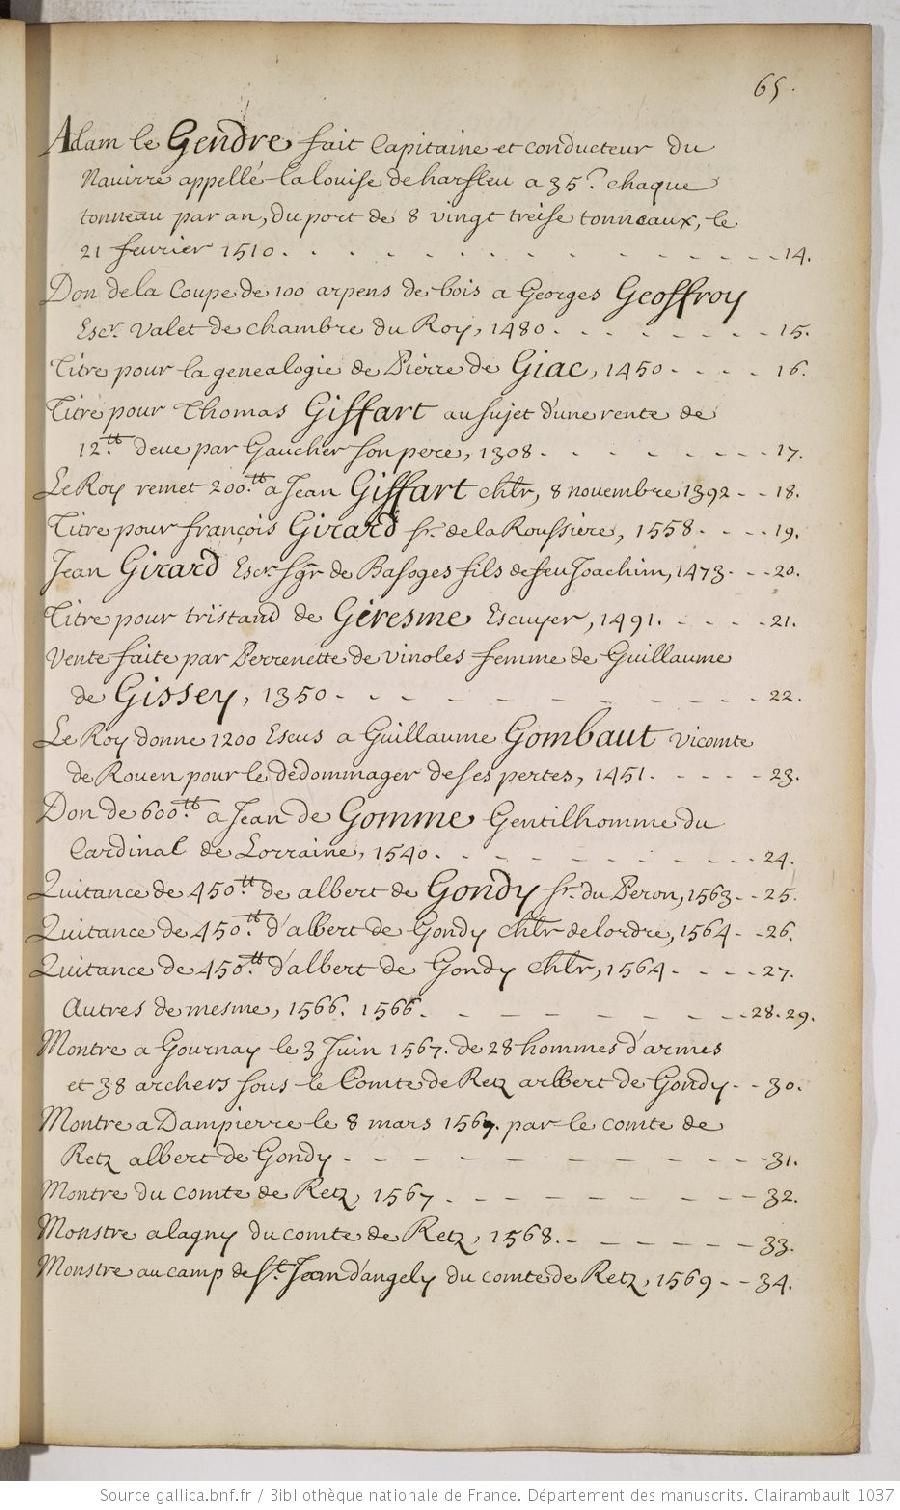 65.
Adam le Gendre fait Capitaine et conducteur du
Navirre appellé la louise de harfleu a 35ˢ. chaque
tonneau par an, du port de 8 vingt treise tonneaux, le
21 feurier 1510. . . . . . . - - - - - 14.
Don de la Coupe de 100 arpens de bois a Georges Geoffroy
Escr. Valet de chambre du Roy, 1480. - - - - - - - 15.
Titre pour la genealogie de Pierre de Giac, 1450 - - - - 16.
Titre pour Thomas Giffart au sujet d'une rente de
12.tt deue par Gaucher son pere, 1308 - - - - - - - 17.
Le Roy remet 200.tt a Jean Giffart chlr, 8 novembre 1392 - - 18.
Titre pour françois Girard sr. de la Roussiere, 1558 - - - - 19.
Jean Girard Escr. sgr de Basoges fils de feu Joachim, 1473 - - - 20.
Titre pour tristand de Geresme Escuyer, 1491. - - - - 21.
Vente faite par Perrenette de vinoles femme de Guillaume
de Gissey, 1350 - - - - - - - - - - 22.
Le Roy donne 1200 Escus a Guillaume Gombaut vicomte
de Rouen pour le dedommager de ses pertes, 1451. - - - - - 23.
Don de 600.tt a Jean de Gomme Gentilhomme du
Cardinal de Lorraine, 1540. - - - - - - - - - 24.
Quitance de 450.tt de albert de Gondy sr. du Peron, 1563 - - 25.
Quitance de 450.tt d'albert de Gondy chlr de lordre, 1564 - - 26.
Quitance de 450.tt d'albert de Gondy chlr, 1564 - - - - 27.
Autres de mesme, 1566. 1566. - - - - - - - - 28. 29.
Montre a Gournay le 3 Juin 1567. de 28 hommes d'armes
et 38 archers sous le Comte de Retz albert de Gondy - - 30.
Montre a Dampierre le 8 mars 1567. par le comte de
Retz albert de Gondy - - - - - - - - - - - 31.
Montre du comte de Retz, 1567 - - - - - - - - - 32.
Monstre a lagny du comte de Retz, 1568. - - - - - - - 33.
Monstre au camp de St. Jean d'angely du comte de Retz, 1569 - - 34.
Source gallica.bnf.fr / Bibliothèque nationale de France. Département des manuscrits. Clairambault 1037